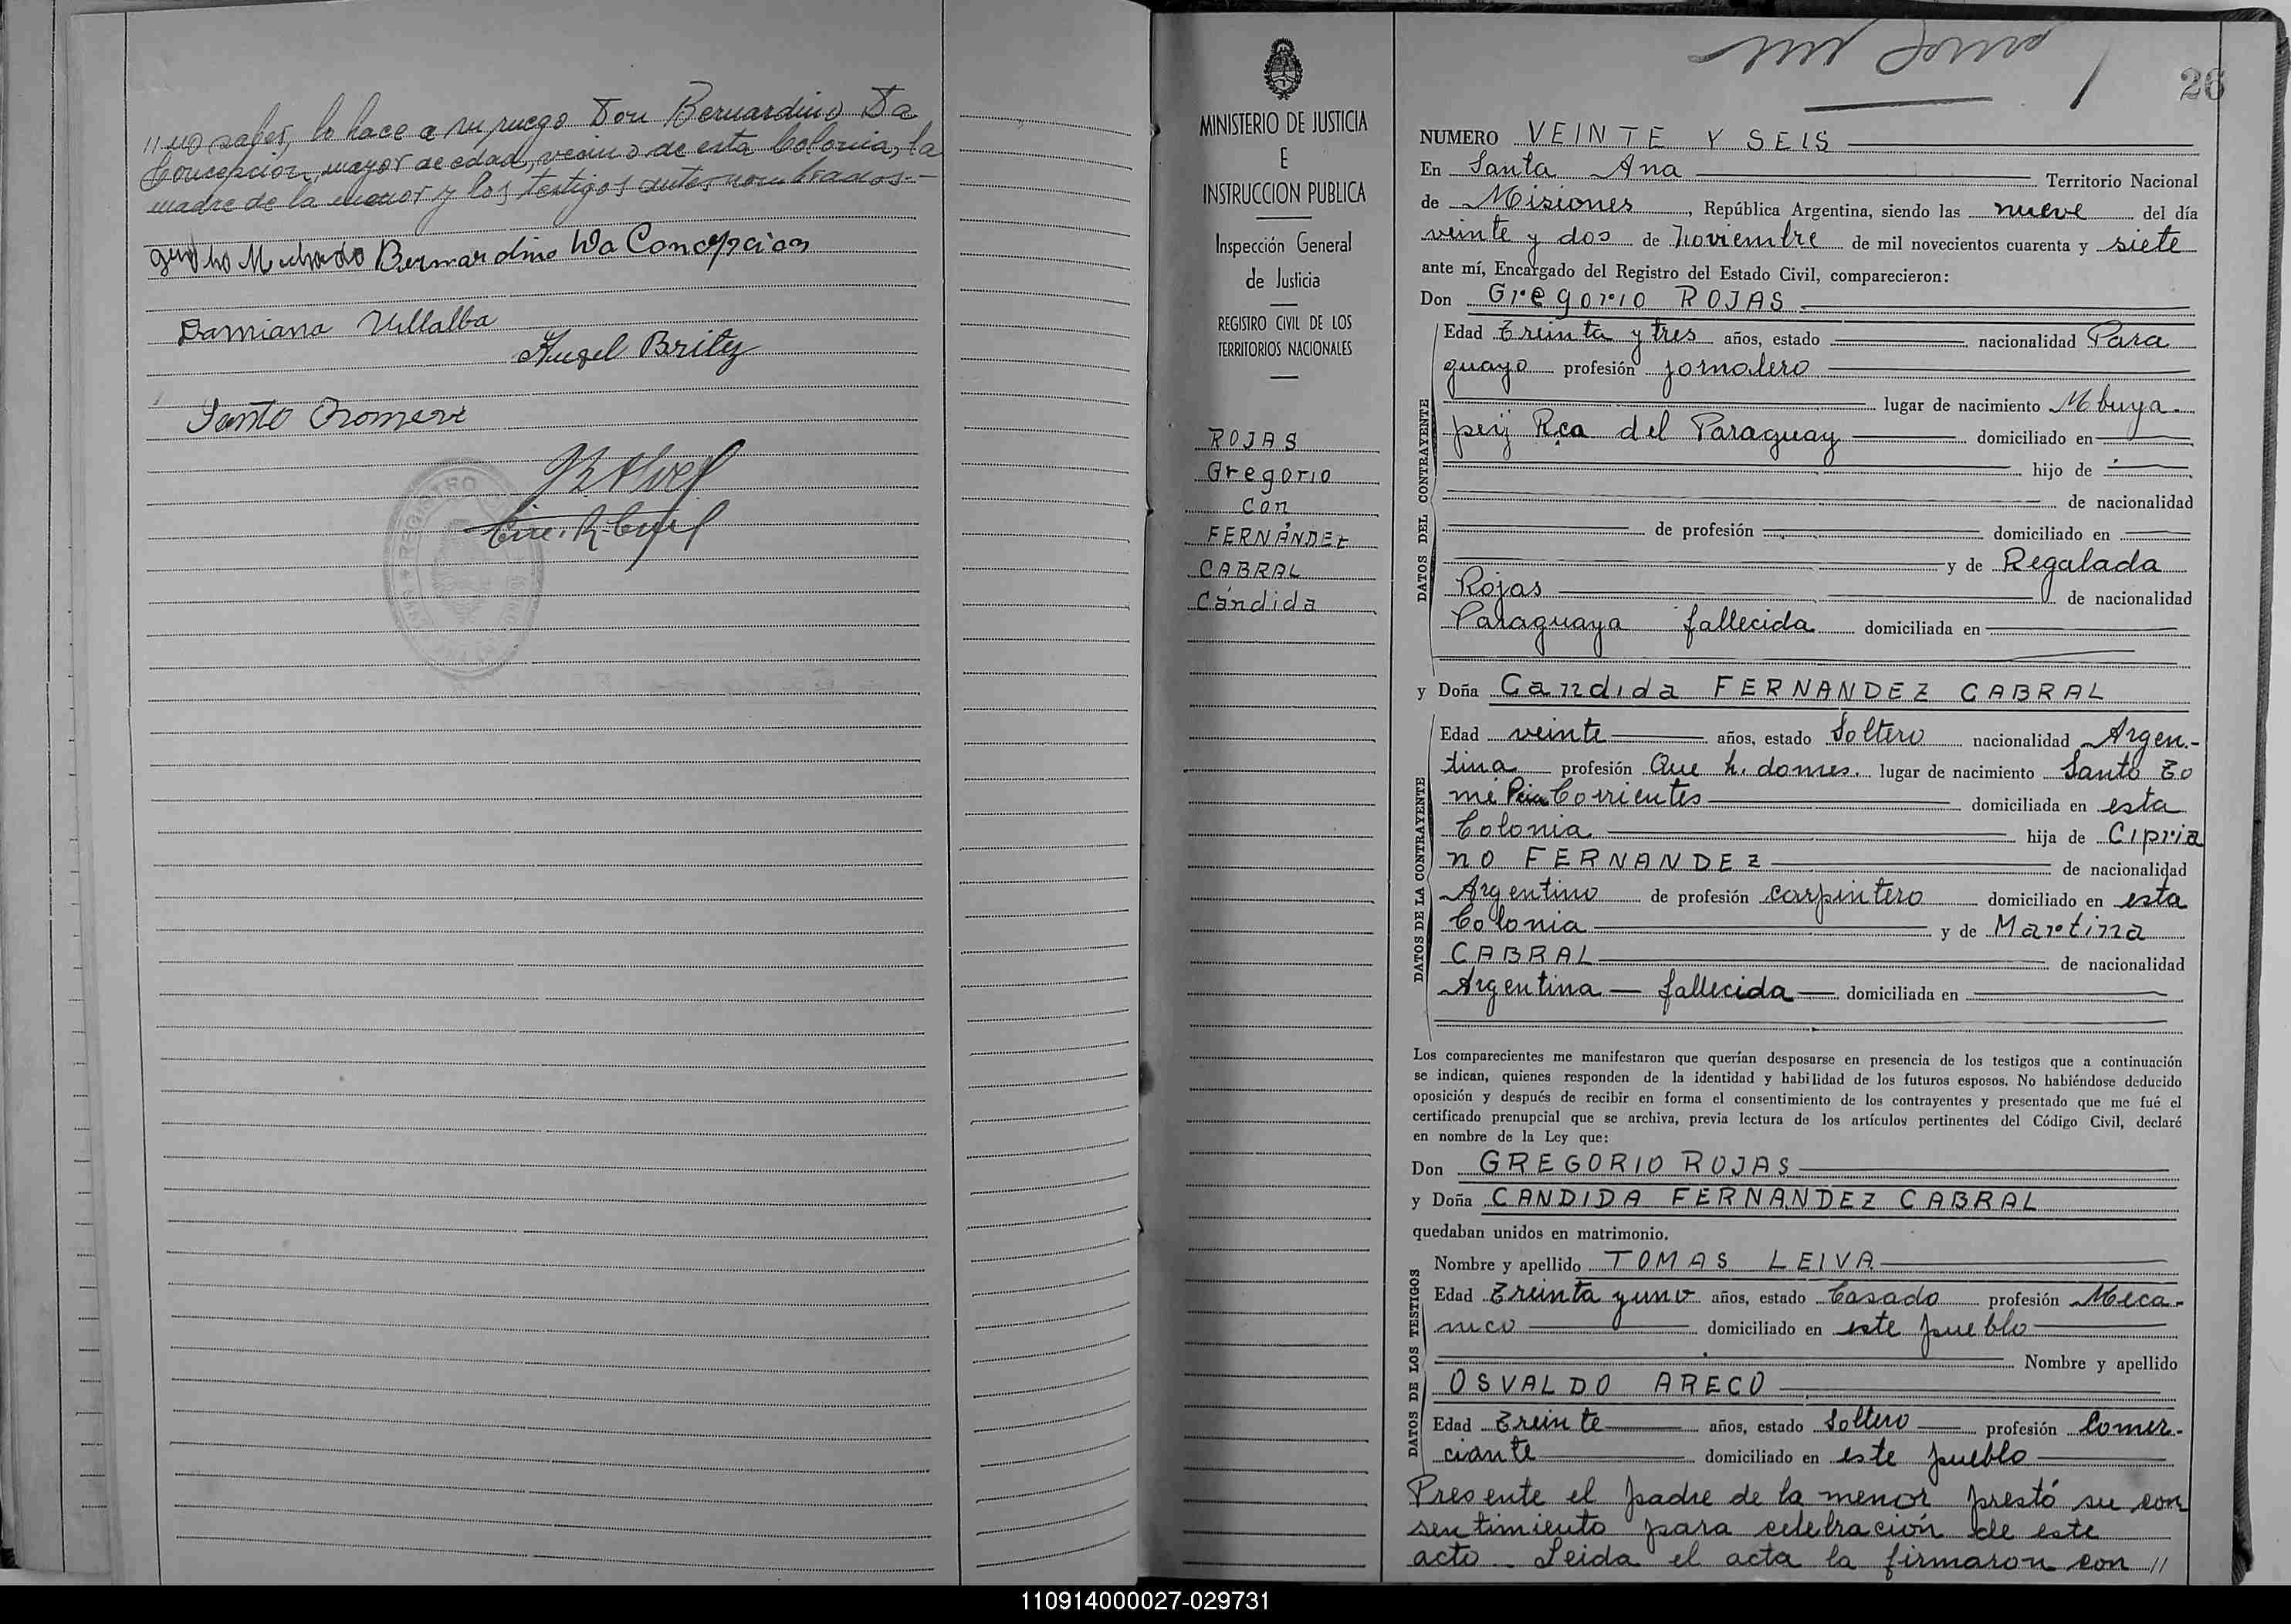 // no saber, lo hace a su ruego Don Bernardino Da
Concepción, mayor de edad, vecino de esta Colonia, la
madre de la menor y los testigos antes nombrados.-
Machado Bernardino Da Concepcion
Damiana Villalba
Angel Britez
Santo Oromere
REGISTRO
26
MINISTERIO DE JUSTICIA
E
INSTRUCCION PUBLICA
Inspección General
de Justicia
REGISTRO CIVIL DE LOS
TERRITORIOS NACIONALES
ROJAS
Gregorio
con
FERNÁNDEZ
CABRAL
Cándida
NUMERO VEINTE Y SEIS
En Santa Ana Territorio Nacional
de Misiones, República Argentina, siendo las nueve del día
veinte y dos de Noviembre de mil novecientos cuarenta y siete
ante mí, Encargado del Registro del Estado Civil, comparecieron:
Don Gregorio ROJAS
DATOS DEL CONTRAYENTE
Edad Treinta y tres años, estado nacionalidad Para
guayo profesión jornalero
lugar de nacimiento Mbuya-
peij Rca del Paraguay domiciliado en
hijo de
de nacionalidad
de profesión domiciliado en
y de Regalada
Rojas de nacionalidad
Paraguaya fallecida domiciliada en
y Doña Candida FERNANDEZ CABRAL
DATOS DE LA CONTRAYENTE
Edad veinte años, estado Soltero nacionalidad Argen-
tina profesión Que h. domes. lugar de nacimiento Santo To
mé Pcia Corrientes domiciliada en esta
Colonia hija de Cipria
no FERNANDEZ de nacionalidad
Argentino de profesión carpintero domiciliado en esta
Colonia y de Martina
CABRAL de nacionalidad
Argentina - fallecida - domiciliada en
Los comparecientes me manifestaron que querían desposarse en presencia de los testigos que a continuación
se indican, quienes responden de la identidad y habilidad de los futuros esposos. No habiéndose deducido
oposición y después de recibir en forma el consentimiento de los contrayentes y presentado que me fué el
certificado prenupcial que se archiva, previa lectura de los artículos pertinentes del Código Civil, declaré
en nombre de la Ley que:
Don GREGORIO ROJAS
y Doña CANDIDA FERNANDEZ CABRAL
quedaban unidos en matrimonio.
DATOS DE LOS TESTIGOS
Nombre y apellido TOMAS LEIVA
Edad Treinta y uno años, estado Casado profesión Meca-
nico domiciliado en este pueblo
Nombre y apellido
OSVALDO ARECO
Edad Treinte años, estado Soltero profesión Comer-
ciante domiciliado en este pueblo
Presente el padre de la menor prestó su con
sentimiento para celebración de este
acto.- Leida el acta la firmaron con //
110914000027-029731